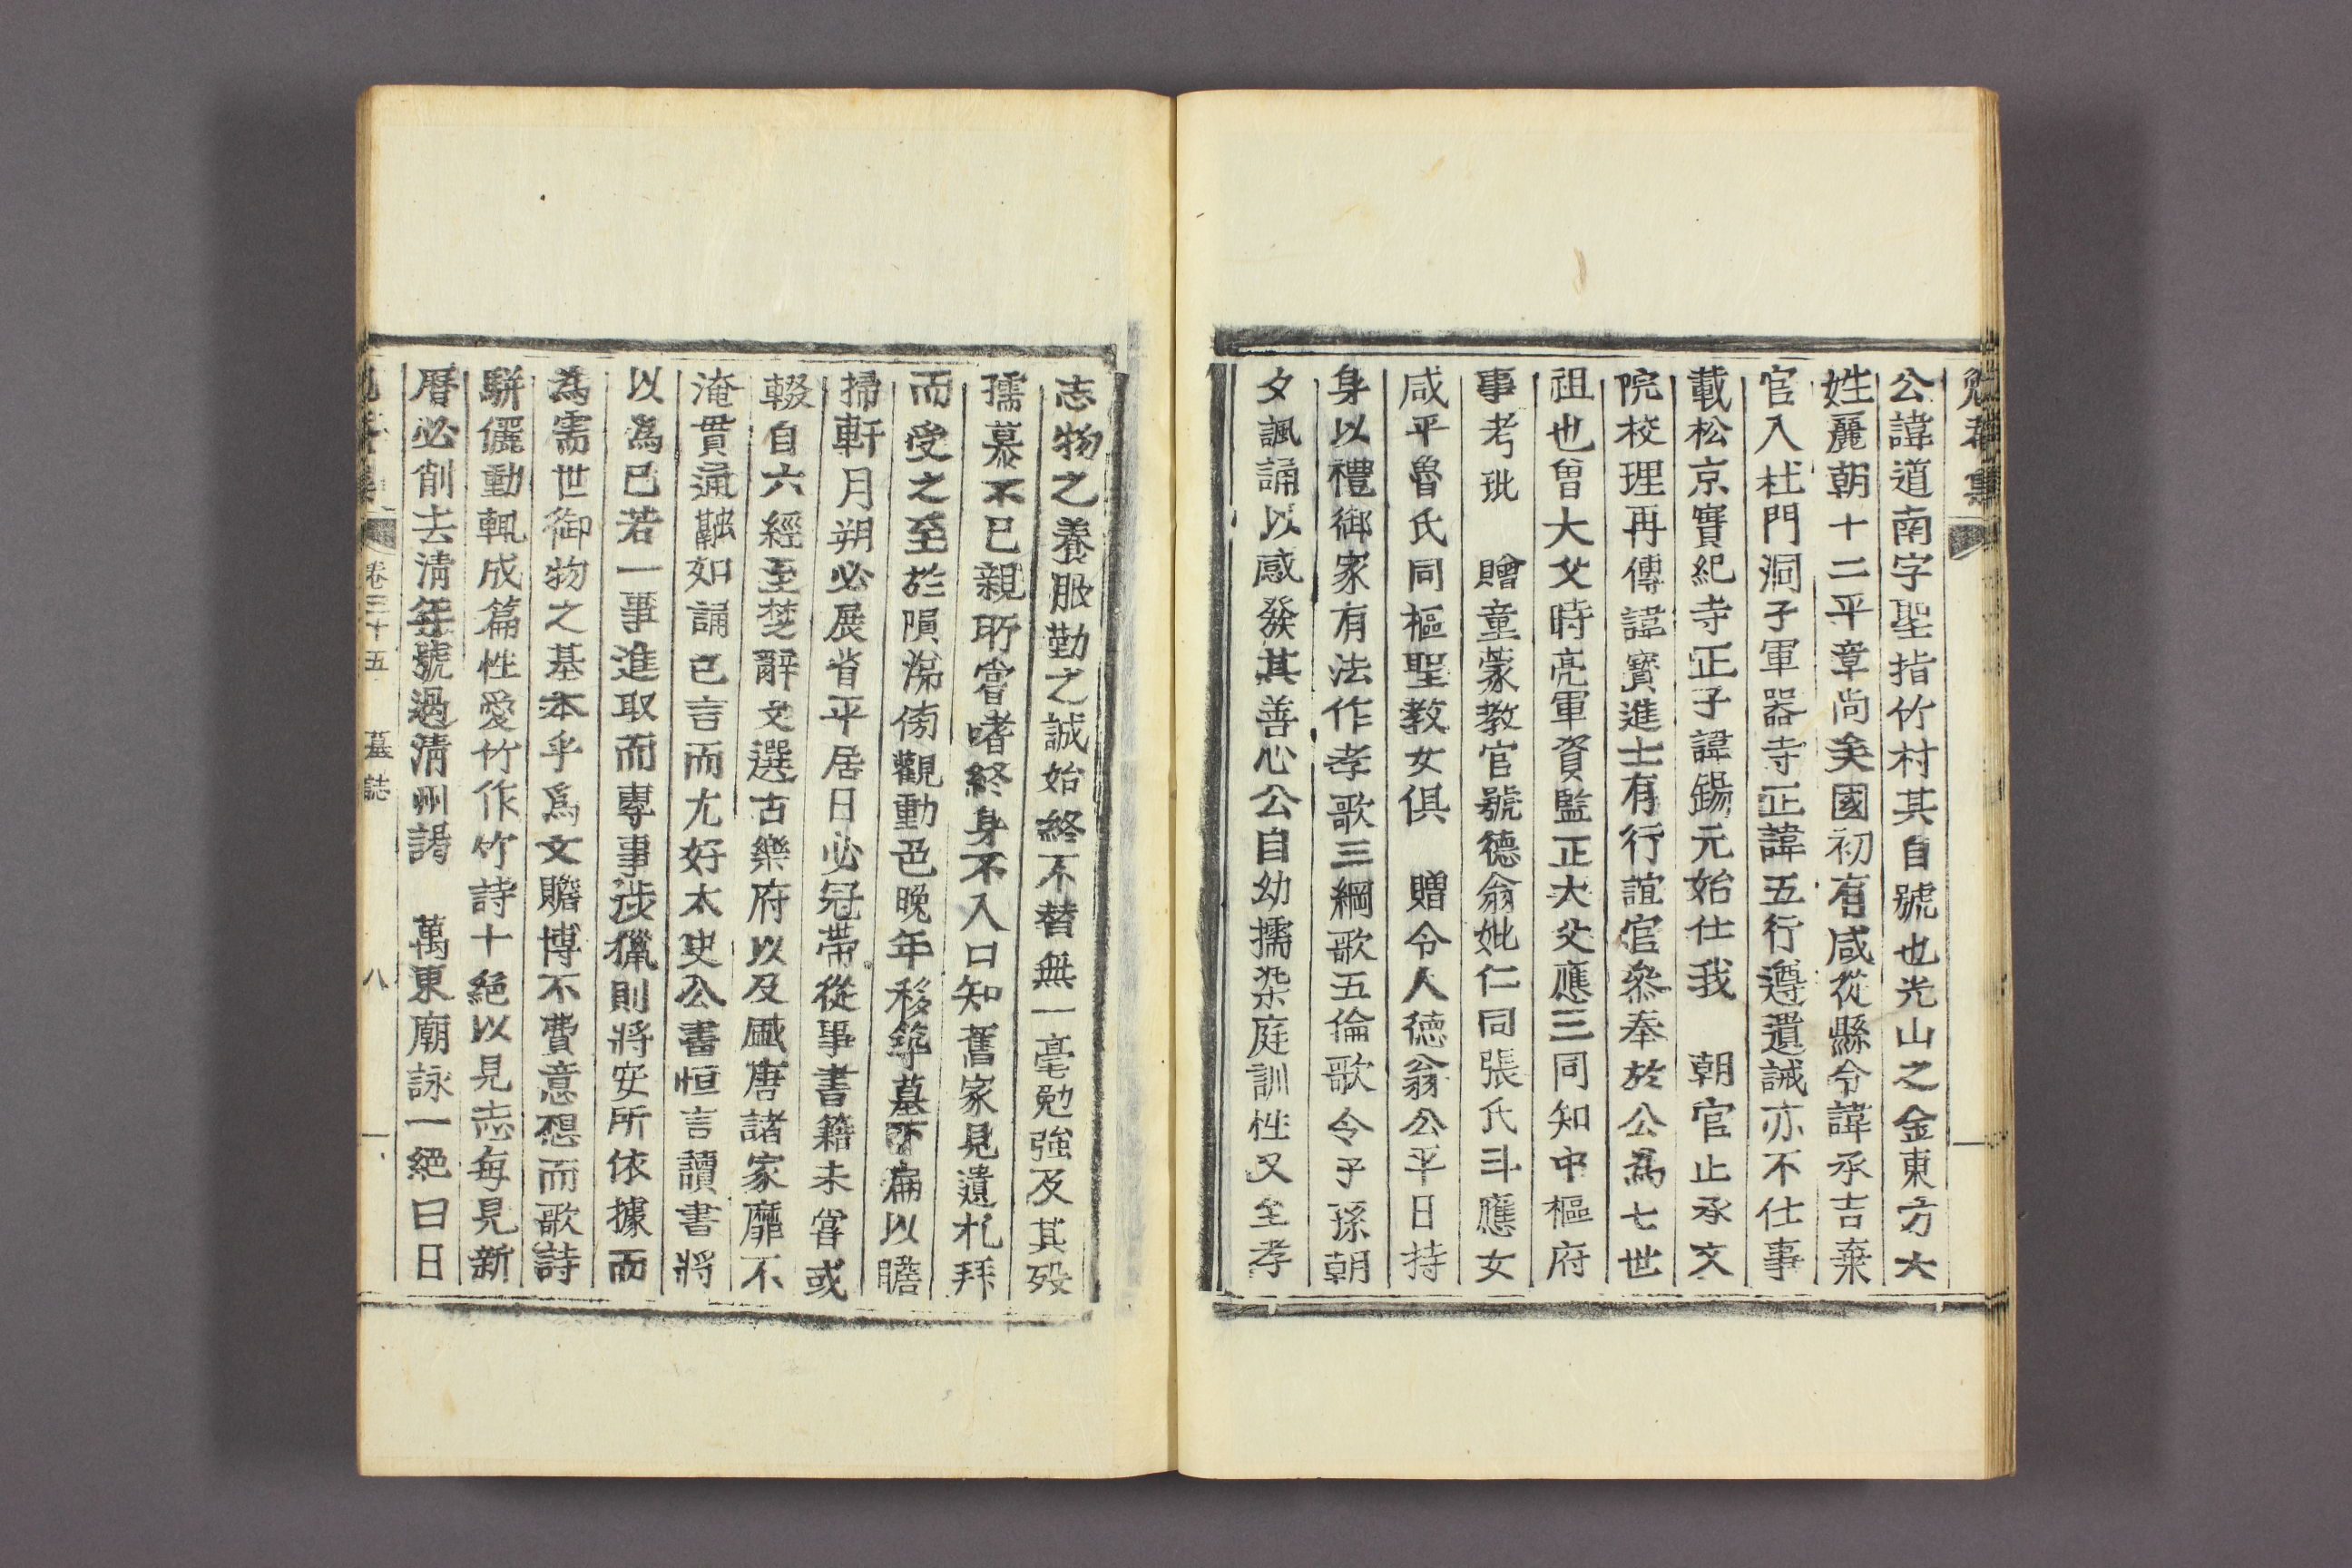 勉菴集
公諱道南字聖指竹村其自號也光山之金東方大
姓麗朝十二平章尚矣國初有咸從縣令諱承吉棄
官入杜門洞子軍器寺正諱五行遵遺誡亦不仕事
載松京實紀寺正子諱錫元始仕我 朝官止承文
院校理再傳諱寶進士有行誼官叅奉於公爲七世
祖也曾大父時亮軍資監正大父應三同知中樞府
事考玭 贈童蒙教官號德翁妣仁同張氏斗應女
咸平魯氏同樞聖教女俱 贈令人德翁公平日持
身以禮御家有法作孝歌三綱歌五倫歌令子孫朝
夕諷誦以感發其善心公自幼擩染庭訓性又至孝
志物之養服勤之誠始終不替無一毫勉強及其歿
孺慕不已親所嘗嗜終身不入口知舊家見遺札拜
而受之至於隕涕傍觀動色晩年移築墓下扁以瞻
掃軒月朔必展省平居日必冠帶從事書籍未嘗或
輟自六經至楚辭文選古樂府以及盛唐諸家靡不
淹貫通融如誦己言而尤好太史公書恒言讀書將
以爲己若一事進取而專事涉獵則將安所依據而
爲需世御物之基本乎爲文贍博不費意想而歌詩
駢儷動輒成篇性愛竹作竹詩十絕以見志每見新
曆必削去淸年號過淸州謁 萬東廟詠一絕曰日
卷三十五 墓誌 八